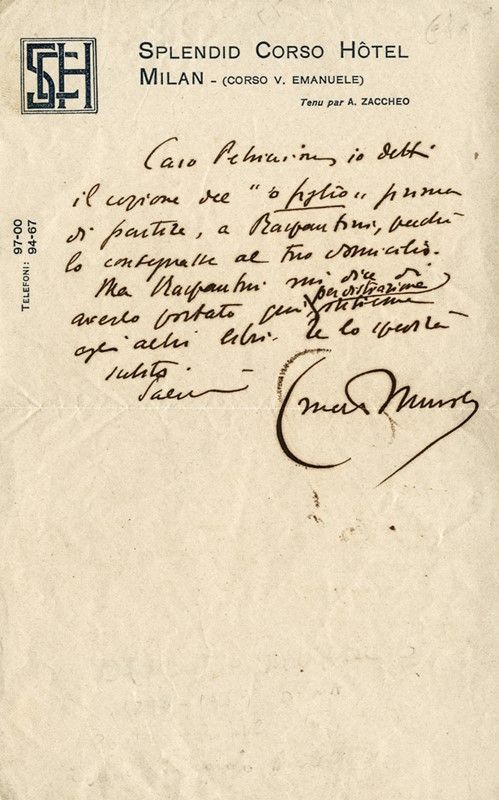 SH
SPLENDID CORSO HÔTEL
MILAN - (CORSO V. EMANUELE)
Tenu par A. ZACCHEO
TELEFONI: 97-00
94-67
Caro io detti
il copione del "'o figlio" prima
di partire, a perchè
lo consegnasse al tuo domicilio.
Ma mi dice di
averlo portato qui per distrazione
agli altri libri. Te lo spedirà
subito.